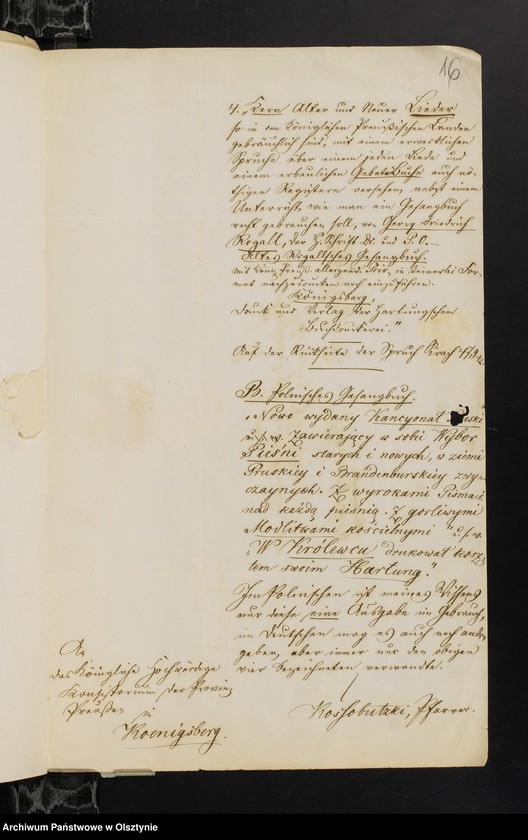 16
4. „Kern Alter und Neuer Lieder
so in den Königlichen Preußischen Landen
gebräuchlich sind, mit einem erwecklichen
Spruche über einem jeden Liede und
einem erbaulichen Gebete Buche auch nö-
thigen Registern versehen, nebst einem
Unterricht, wie man ein Gesangbuch
recht gebrauchen soll, von Georg Friedrich
Rogall, der H. Schrift Dr. und P. O. –
Altes Rogallsches Gesangbuch.
Mit König. Preuß. allergnäd. Priv., in keinerlei For-
mat nachzudrucken noch einzuführen.
Königsberg,
Druck und Verlag der Hartungschen
Buchdruckerei.“
Auf der Rückseite der Spruch Sirach
B. Polnisches Gesangbuch.
„Nowo wydany Kancyonał
u. s. w. Zawierający w sobie Wybor
Pieśni starych i nowych, w ziemi
Pruskiey i Brandenburskiey zwy-
czaynych. Z wyrokami Pisma S.
nad każdą pieśnią. Z gorliwymi
Modlitwami kościelnymi“ u. s. w.
„W Krolewcu drukował kosz-
tem swoim Hartung.“
Im Polnischen ist meines Wissens
nur diese eine Ausgabe im Gebrauch,
im Deutschen mag es auch noch andre
geben, aber immer nur den obigen
vier bezeichneten verwandte.
Kossobutzki, Pfarrer.
An
das Königliche Hochwürdige
Konsistorium der Provinz
Preußen
in
Koenigsberg.
Archiwum Państwowe w Olsztynie